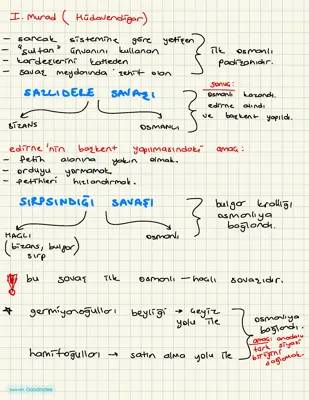 I. Murad ( Hüdavendigar)
- sancak sistemine göre yetişen
- "sultan" ünvanını kullanan
- kardeşlerini katleden
- savaş meydanında şehit olan
ilk osmanlı
padişahıdır.
SAZLIDERE SAVAŞI
BİZANS
OSMANLI
sonuç:
osmanlı kazandı.
edirne alındı
ve başkent yapıldı.
edirne'nin başkent yapılmasındaki amaç:
- fetih alanına yakın olmak.
- orduyu yormamak.
- fetihleri hızlandırmak.
SIRPSINDIĞI SAVAŞI
HAÇLI
(bizans, bulgar
sırp
OSMANLI
bulgar krallığı
osmanlıya
bağlandı.
! bu savaş ilk osmanlı-haçlı savaşıdır.
germiyanoğulları beyliği → çeyiz
yolu ile
hamitoğulları → satın alma yolu ile
osmanlıya
bağlandı.
amaç: anadolu
türk siyasi
birliğini
sağlamak.
Made with Goodnotes